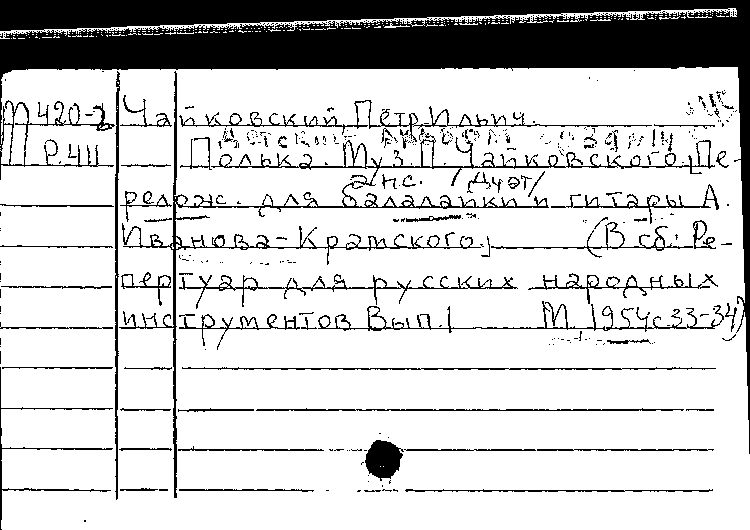 М 420-2 Чайковский, Пётр Ильич.
Детский альбом
Р.411 Полька. Муз. П. Чайковского. [Пе-
анс. /Дуэт/
релож. для балалайки и гитары А.
Иванова-Крамского] (В сб: Ре-
пертуар для русских народных
инструментов Вып. 1 М. 1954 с 33-34)